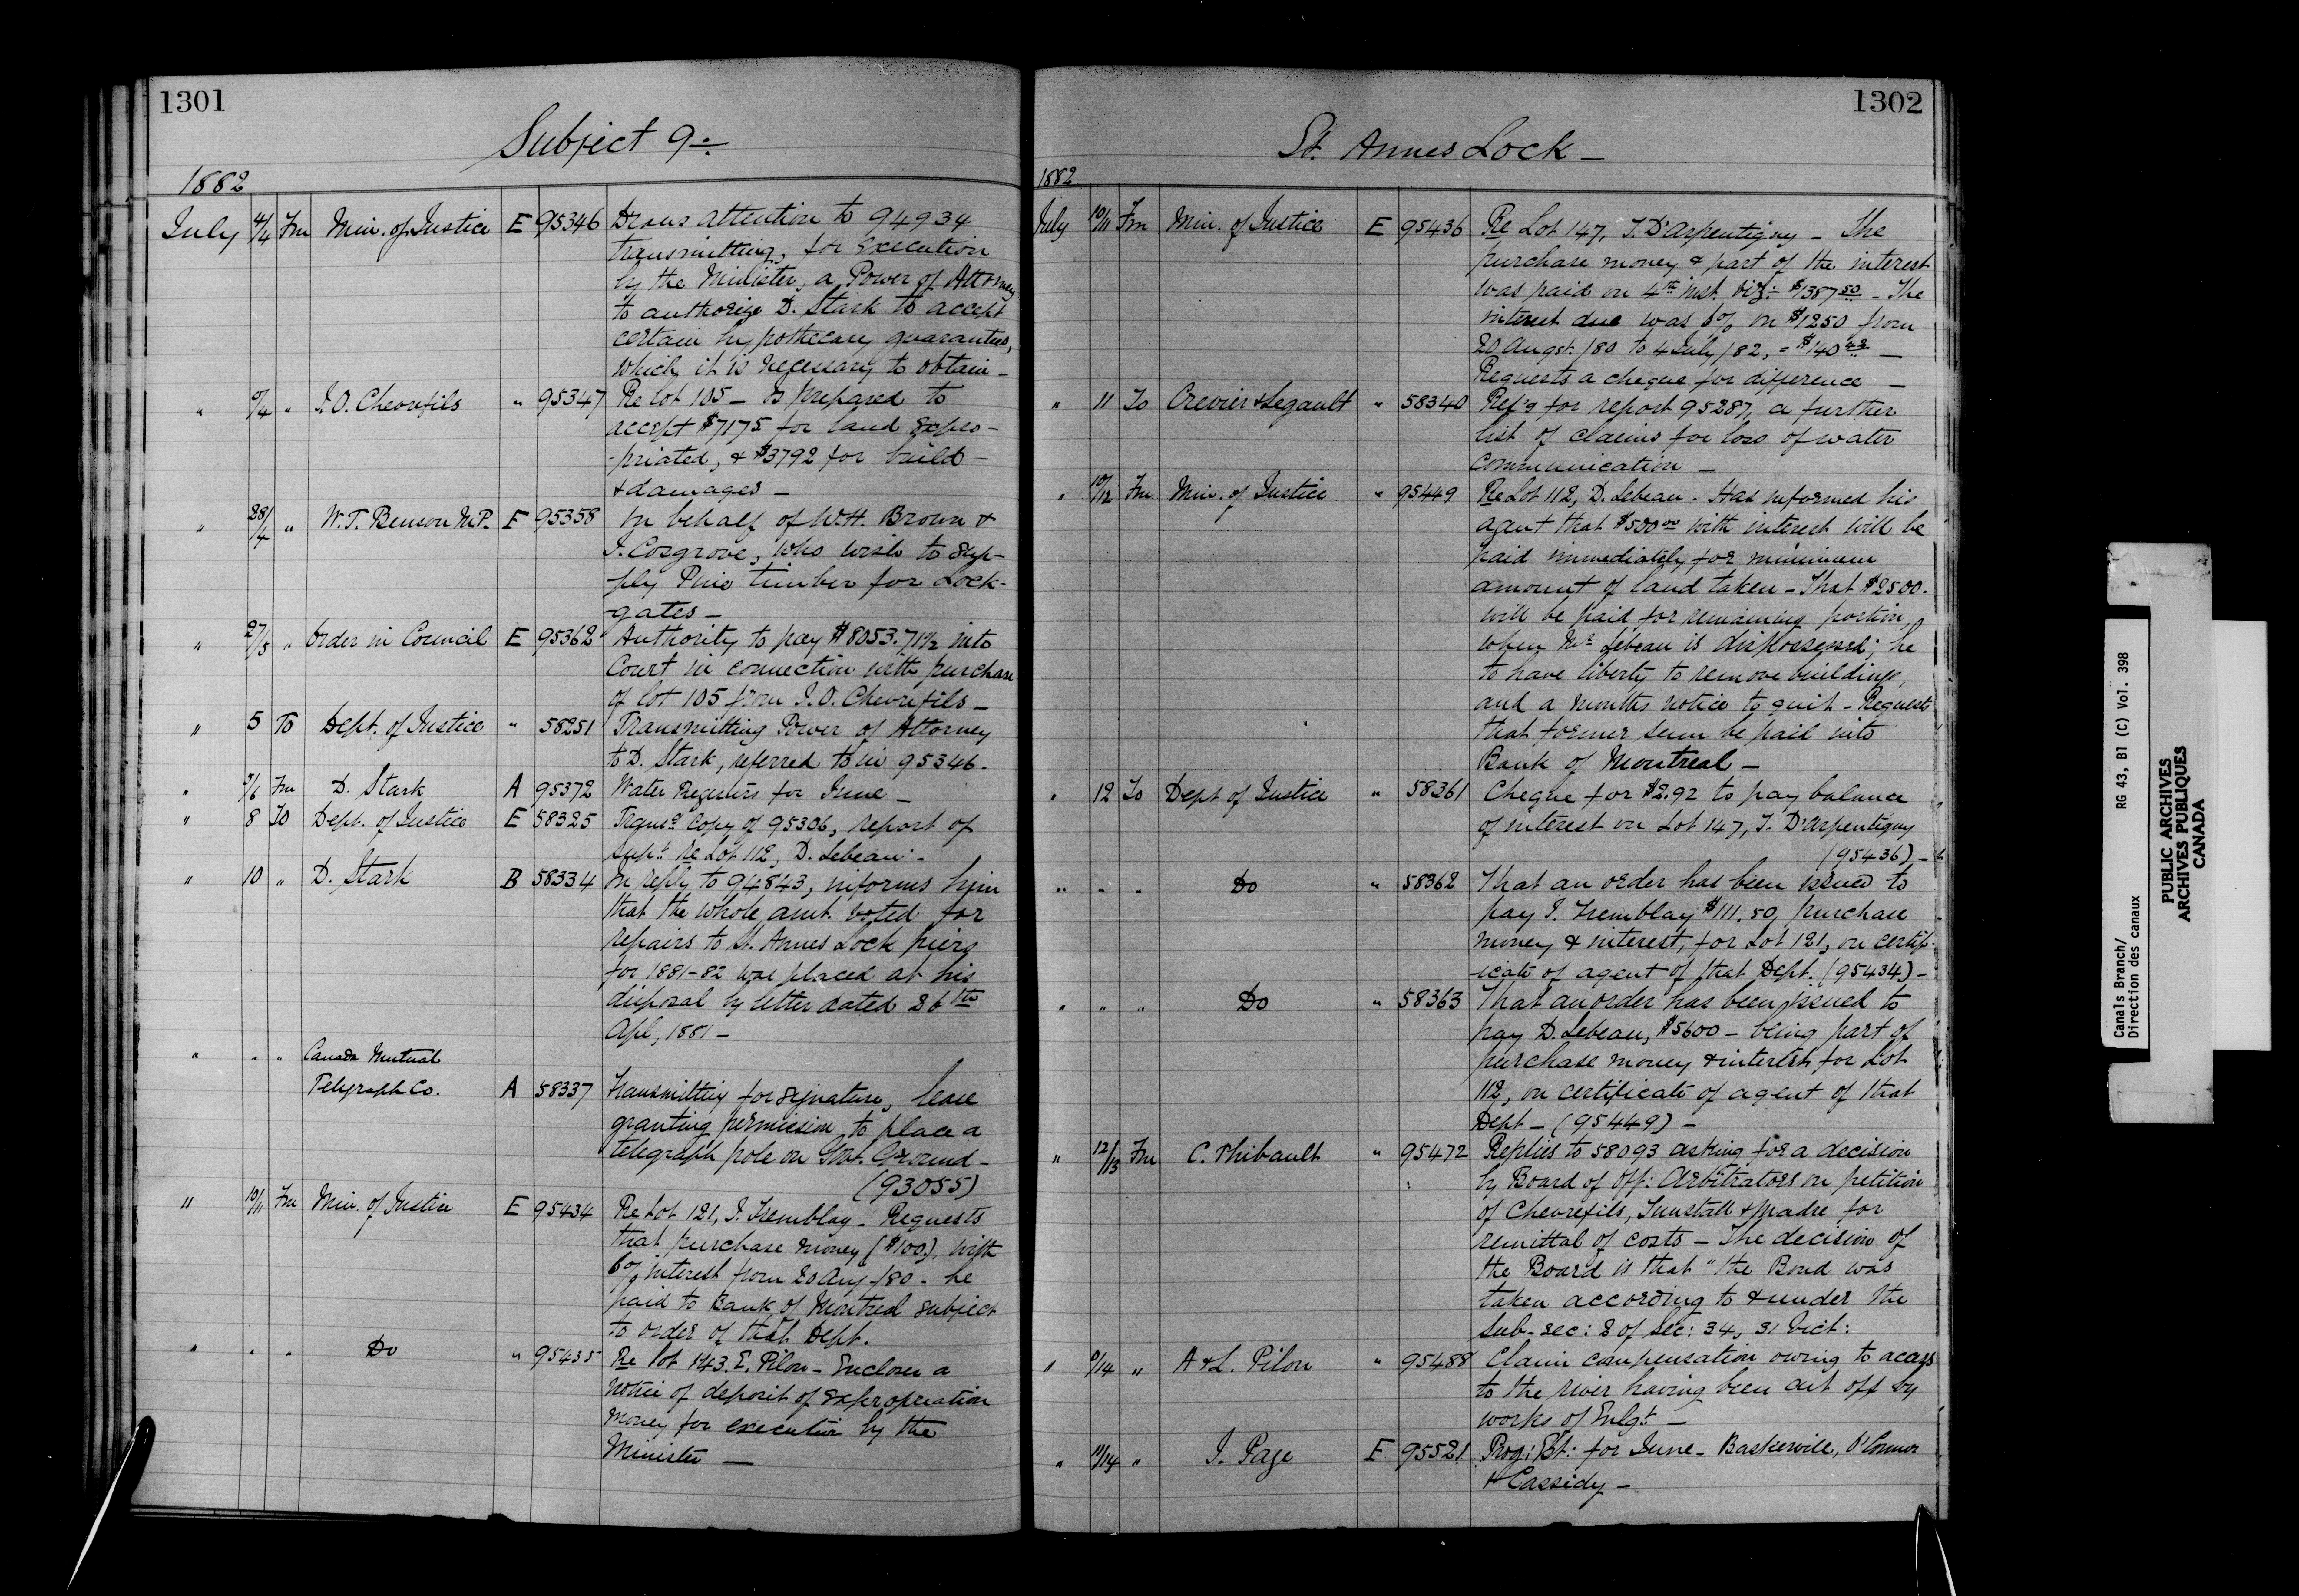 1301
Subject 9
1882
July 4/4 Fm Min. of Justice E 95346 Draws attention to 94934
transmitting, for execution
by the Minister, a Power of Attorney
to authorize D. Stark to accept
certain hypothecary guarantees,
which it is necessary to obtain -
" /4 " J. O. Chevrefils " 95347 Re Lot 105 - Is prepared to
accept $7175 for land expro-
-priated, & $3792 for build-
& damages -
" 28/4 " W. T. Benson M.P. E 95358 On behalf of W.H. Brown &
J. Cosgrove, who wish to sup-
ply Pine timber for Lock-
gates -
" 27/5 " Order in Council E 95362 Authority to pay $8053.71½ into
Court in connection with purchase
of lot 105 from J. O. Chevrefils -
" 5 To Dept. of Justice " 58251 Transmitting Power of Attorney
to D. Stark, referred to in 95346.
" 5/6 Fm D. Stark A 95372 Water Registers for June -
" 8 To Dept. of Justice E 58325 Copy of 95306, report of
Supt. re Lot 112, D. Lebeau -
" 10 " D. Stark B 58334 In reply to 94843, informs him
that the whole amt. voted for
repairs to St. Annes Lock piers
for 1881-82 was placed at his
disposal by letter dated 26th
Apl, 1881 -
" " " Canada Mutual
Telegraph Co. A 58337 Transmitting for signature, lease
granting permission to place a
telegraph pole on Govt. Ground -
(93055)
" 10/11 Fm Min. of Justice E 95434 Re Lot 121, J. Tremblay - Requests
that purchase money ($100.), with
6% interest from 20 Aug /80 - be
paid to Bank of Montreal subject
to order of that Dept.
" " " Do " 95435 Re lot 143. E. Pilon - Encloses a
notice of deposit of expropriation
money for execution by the
Minister -
1302
St. Annes Lock -
1882
July 10/11 Fm Min. of Justice E 95436 Re Lot 147, J. D'Arpentigny - The
purchase money & part of the interest
was paid on 4th inst. viz:- $1387 50 - The
interest due was 6% on $1250 from
20 Augst. /80 to 4 July /82, = $140 42 -
Requests a cheque for difference -
" 11 To Crevier & Legault " 58340 Ref'g for report 95287, a further
list of claims for loss of water
communication -
" 10/12 Fm Min. of Justice " 95449 Re Lot 112, D. Lebeau - Has informed his
agent that $500 00 with interest will be
paid immediately for minimum
amount of land taken - That $2500.
will be paid for remaining portion,
when Mr Lebeau is dispossessed; he
to have liberty to remove buildings,
and a months notice to quit - Requests
that former sum be paid into
Bank of Montreal -
" 12 To Dept of Justice " 58361 Cheque for $2.92 to pay balance
of interest on Lot 147, J. D'Arpentigny
(95436) -
" " " Do " 58362 That an order has been issued to
pay J. Tremblay $111.50, purchase
money & interest, for Lot 121, on certif-
-icate of agent of that Dept. (95434) -
" " " Do " 58363 That an order has been issued to
pay D. Lebeau, $5600 - being part of
purchase money & interest, for Lot
112, on certificate of agent of that
Dept - (95449) -
" 12/13 Fm C. Thibault " 95472 Replies to 58093 asking for a decision
by Board of Off: Arbitrators on petition
of Chevrefils, Tunstall & Madre for
remittal of costs - The decision of
the Board is that "the Bond was
taken according to & under the
sub-sec: 2 of Sec: 34, 31 Vict:
" /14 " A & L. Pilon " 95488 Claim compensation owing to access
to the river having been cut off by
works of Enlgt -
" 11/14 " J. Page E 95521 Prog: Est: for June - Baskerville, O'Connor
& Cassidy -
Canals Branch/
Direction des canaux
RG 43, B1 (C) Vol. 398
PUBLIC ARCHIVES
ARCHIVES PUBLIQUES
CANADA